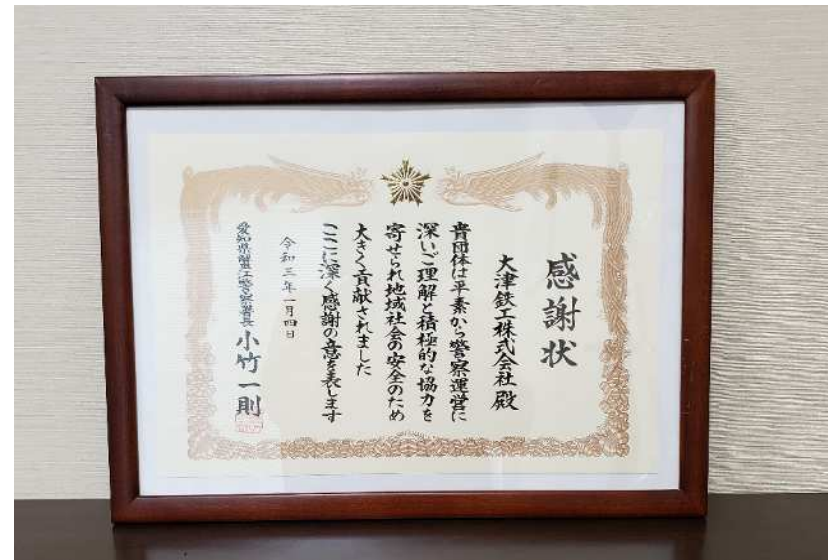 感謝状
大津鉄工株式会社殿
貴団体は平素から警察運営に
深いご理解と積極的な協力を
寄せられ地域社会の安全のため
大きく貢献されました
ここに深く感謝の意を表します
令和三年一月四日
愛知県蟹江警察署長 小竹一則